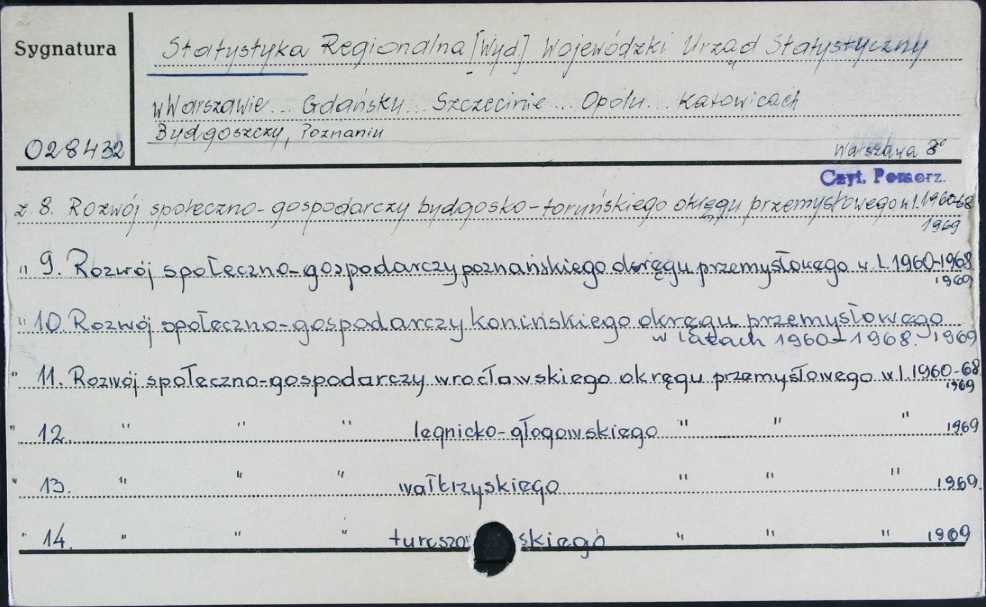 Sygnatura
Statystyka Regionalna [Wyd] Wojewódzki Urząd Statystyczny
w Warszawie... Gdańsku... Szczecinie... Opolu... Katowicach
Bydgoszczy, Poznaniu
028432
Warszawa 8°
Czyt. Pomorz.
z 8. Rozwój społeczno-gospodarczy bydgosko-toruńskiego okręgu przemysłowego w l. 1960-68
1969
" 9. Rozwój społeczno-gospodarczy poznańskiego okręgu przemysłowego w l. 1960-1968
1969
" 10. Rozwój społeczno-gospodarczy konińskiego okręgu przemysłowego
w latach 1960-1968. 1969
" 11. Rozwój społeczno-gospodarczy wrocławskiego okręgu przemysłowego w l. 1960-68
1969
" 12. " " " legnicko-głogowskiego " " " 1969
" 13. " " " wałbrzyskiego " " " 1969.
" 14. " " " skiego " " " 1969